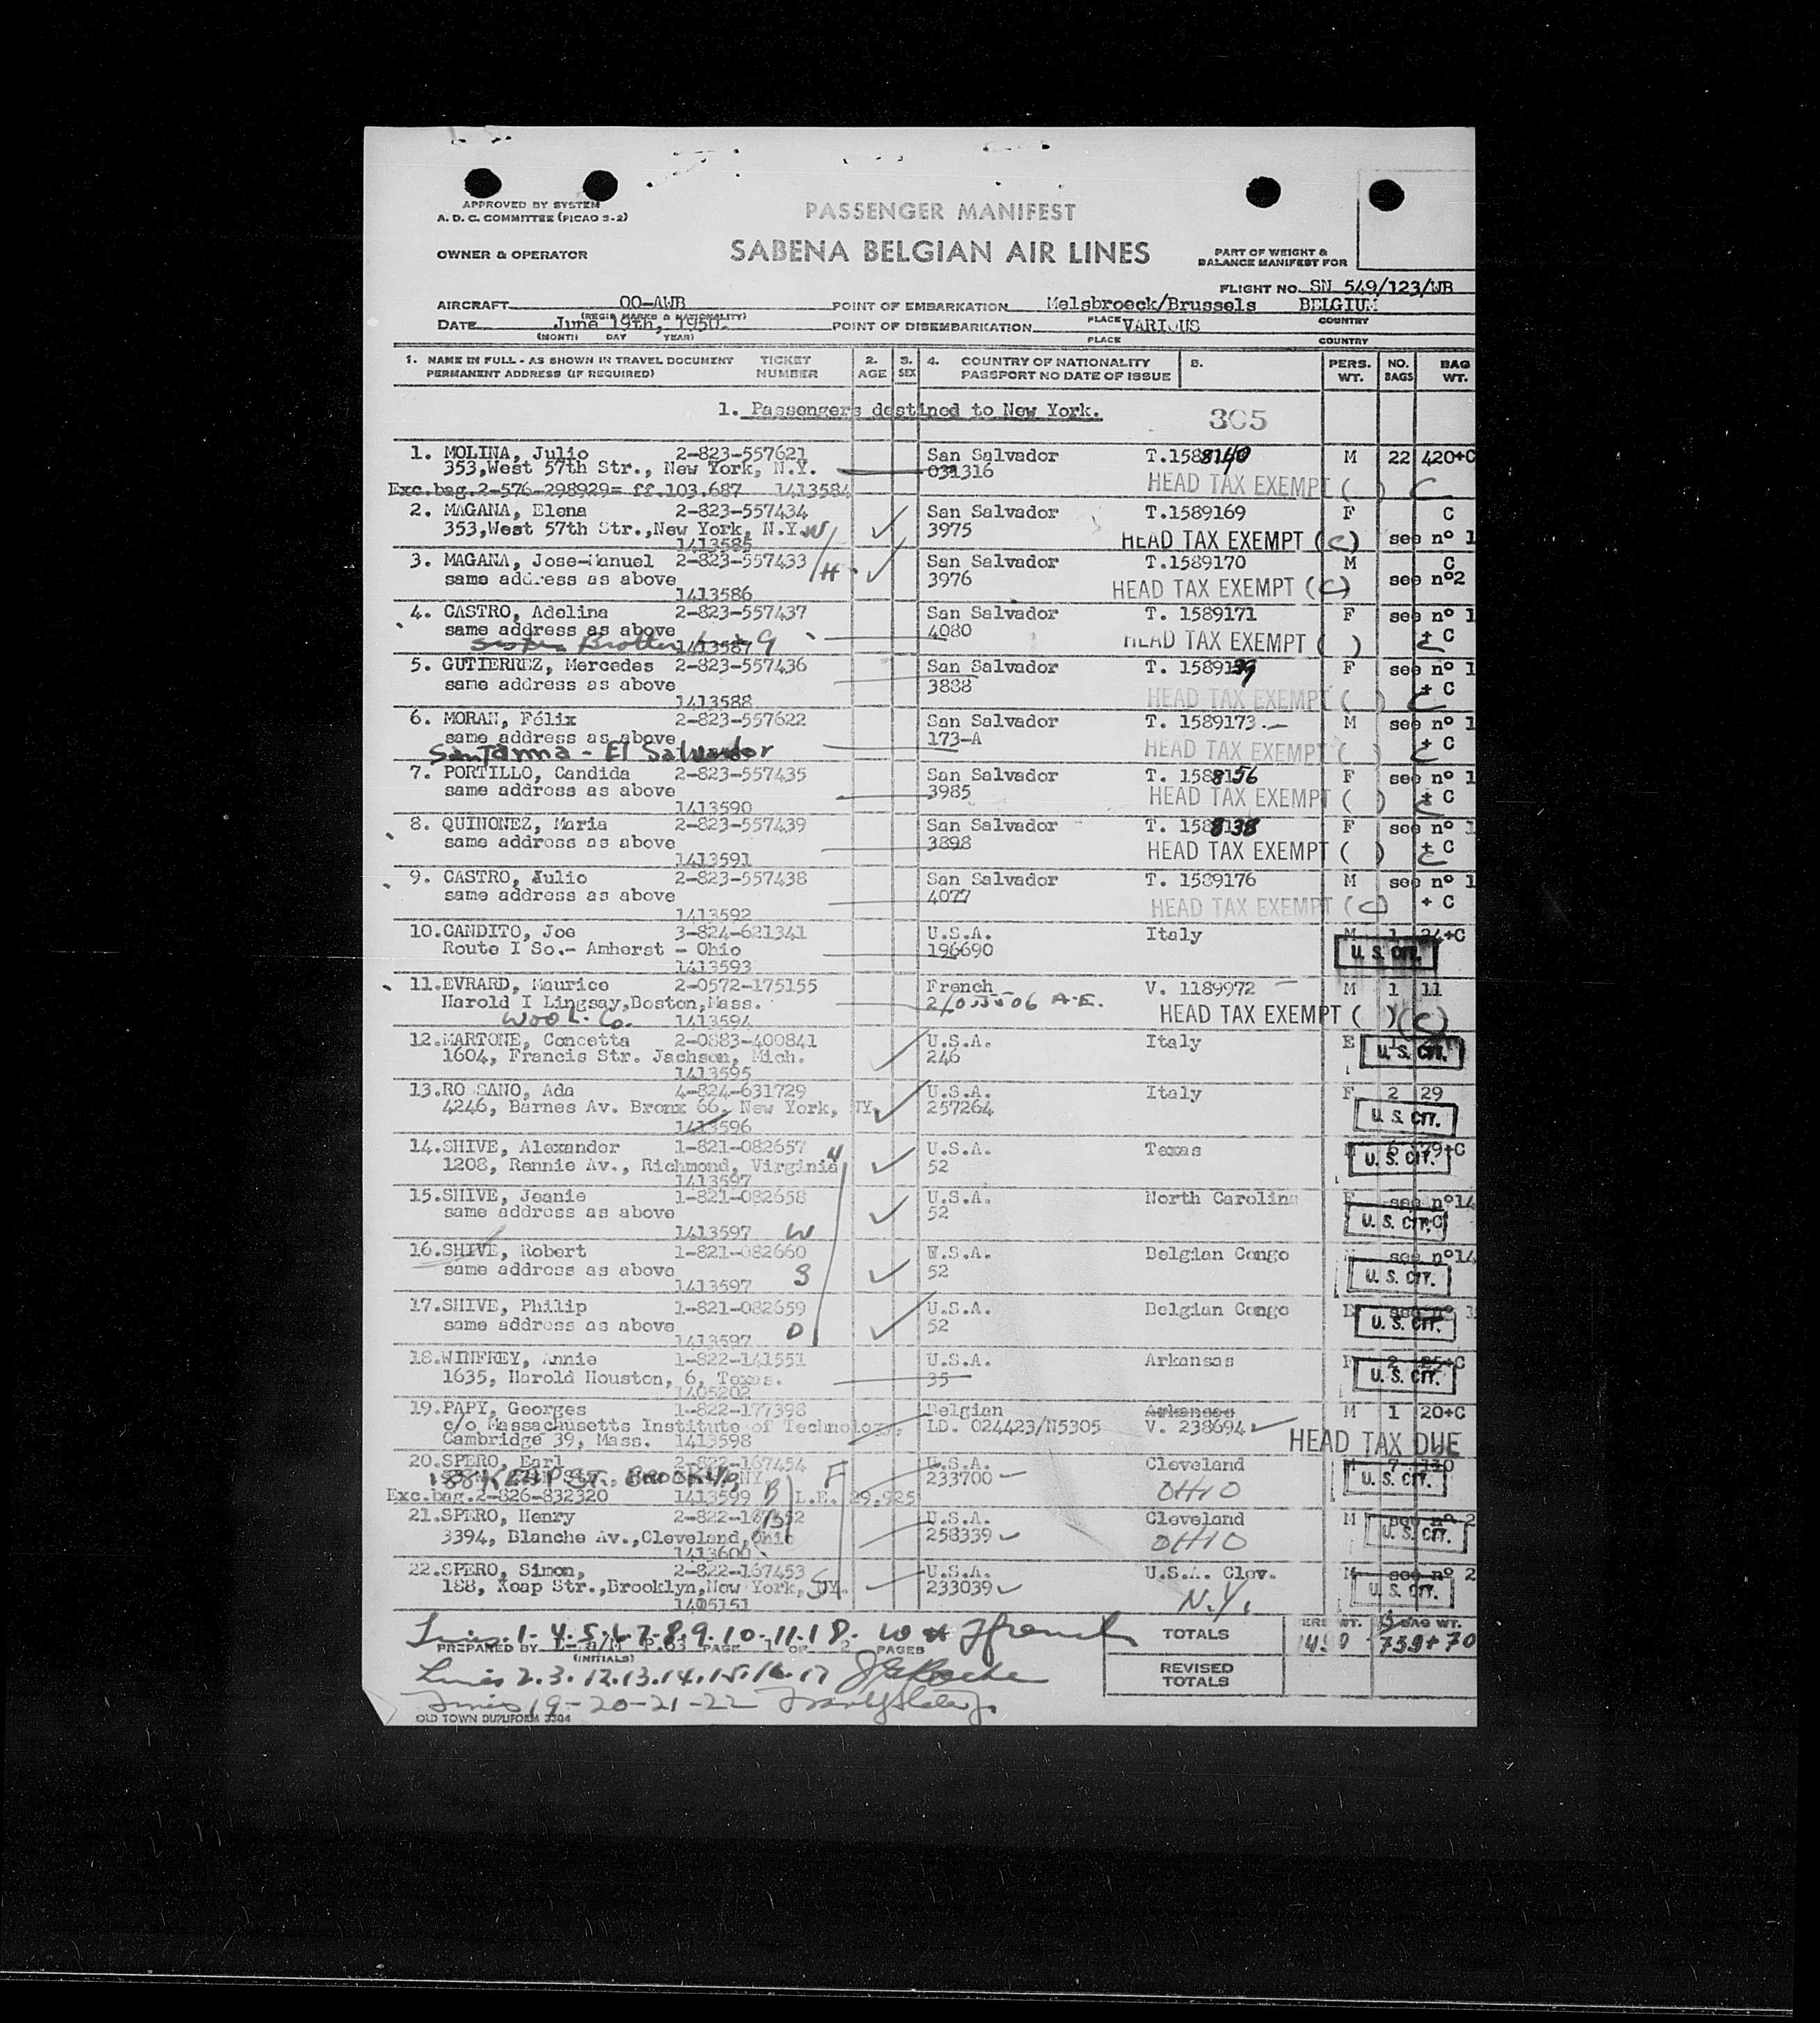 APPROVED BY SYSTEM
A. D. C. COMMITTEE (PICAO S-2)
PASSENGER MANIFEST
OWNER & OPERATOR
SABENA BELGIAN AIR LINES
PART OF WEIGHT &
BALANCE MANIFEST FOR
FLIGHT NO. SN 549/123/WB
AIRCRAFT OO-AWB POINT OF EMBARKATION Melsbroeck/Brussels BELGIUM
(REGIS MARKS & NATIONALITY) PLACE COUNTRY
DATE June 19th, 1950. POINT OF DISEMBARKATION VARIOUS
(MONTH DAY YEAR) PLACE COUNTRY
1. NAME IN FULL - AS SHOWN IN TRAVEL DOCUMENT TICKET 2. 3. 4. COUNTRY OF NATIONALITY 5. PERS. NO. BAG
PERMANENT ADDRESS (IF REQUIRED) NUMBER AGE SEX PASSPORT NO DATE OF ISSUE WT. BAGS WT.
1. Passengers destined to New York. 305
1. MOLINA, Julio 2-823-557621 San Salvador T.1588140 M 22 420+C
353,West 57th Str., New York, N.Y. 031316 HEAD TAX EXEMPT ( ) C
Exc.bag.2-576-298929= ff.103.687 1413584
2. MAGANA, Elena 2-823-557434 San Salvador T.1589169 F C
353,West 57th Str.,New York, N.Y. W 3975 HEAD TAX EXEMPT (C) see nº 1
1413585
3. MAGANA, Jose-Manuel 2-823-557433 San Salvador T.1589170 M C
same address as above H 3976 HEAD TAX EXEMPT (C) see nº2
1413586
4. CASTRO, Adelina 2-823-557437 San Salvador T. 1589171 F see nº 1
same address as above 4080 HEAD TAX EXEMPT ( ) + C
Sister Brother 1413587 9
5. GUTIERREZ, Mercedes 2-823-557436 San Salvador T. 1589139 F see nº 1
same address as above 3888 HEAD TAX EXEMPT ( ) + C
1413588
6. MORAN, Félix 2-823-557622 San Salvador T. 1589173 M see nº 1
same address as above 173-A HEAD TAX EXEMPT ( ) + C
SanTanna - El Salvador
7. PORTILLO, Candida 2-823-557435 San Salvador T. 1588156 F see nº 1
same address as above 3985 HEAD TAX EXEMPT ( ) + C
1413590
8. QUINONEZ, Maria 2-823-557439 San Salvador T. 1588138 F see nº 1
same address as above 3898 HEAD TAX EXEMPT ( ) + C
1413591
9. CASTRO, Julio 2-823-557438 San Salvador T. 1589176 M see nº 1
same address as above 4077 HEAD TAX EXEMPT (C) + C
1413592
10. CANDITO, Joe 3-824-621341 U.S.A. Italy M 1 24+C
Route I So.- Amherst - Ohio 196690 U. S. CIT.
1413593
11. EVRARD, Maurice 2-0572-175155 French V. 1189972 M 1 11
Harold I Lingsay,Boston,Mass. A.E. HEAD TAX EXEMPT ( ) (C)
Wool. Co. 1413594
12. MARTONE, Concetta 2-0883-400841 U.S.A. Italy
1604, Francis Str. Jachson, Mich. 246 U. S. CIT.
1413595
13. RO SANO, Ada 4-824-631729 U.S.A. Italy F 2 29
4246, Barnes Av. Bronx 66, New York, NY. 257264 U. S. CIT.
1413596
14. SHIVE, Alexander 1-821-082657 U.S.A. Texas 6 79+C
1208, Rennie Av., Richmond, Virginia 52 U. S. CIT.
1413597
15. SHIVE, Jeanie 1-821-082658 U.S.A. North Carolina F see nº14
same address as above 52 U. S. CIT.
1413597 W
16. SHIVE, Robert 1-821-082660 U.S.A. Belgian Congo see nº14
same address as above 52 U. S. CIT.
1413597 S
17. SHIVE, Philip 1-821-082659 U.S.A. Belgian Congo
same address as above 52 U. S. CIT.
1413597 D
18. WINFREY, Annie 1-822-141551 U.S.A. Arkansas F 2 25+C
1635, Harold Houston, 6, Texas. 35 U. S. CIT.
1405202
19. PAPY, Georges 1-822-177398 Belgian Arkansas M 1 20+C
c/o Massachusetts Institute of Technology, LD. 024423/N5305 V. 238694
Cambridge 39, Mass. 1413598 HEAD TAX DUE
20. SPERO, Earl 2-822-167454 U.S.A. Cleveland
188 KEAP ST., BROOKLYN, NY F 233700 OHIO U. S. CIT.
Exc.bag.2-826-832320 1413599 B L.E. 29.925
21. SPERO, Henry 2-822-167452 U.S.A. Cleveland M see nº 2
3394, Blanche Av.,Cleveland,Ohio 258339 OHIO U. S. CIT.
1413600
22. SPERO, Simon, 2-822-167453 U.S.A. U.S.A. Clev. M see nº 2
188, Keap Str.,Brooklyn,New York, NY. 233039 N.Y. U. S. CIT.
1405151
Lines 1-4.5.6.7-8.9.10.11.18.
TOTALS PERS WT. BAG WT.
PREPARED BY P.63 PAGE 1 OF 2 PAGES 739+70
(INITIALS)
Lines 2.3.12.13.14.15.16.17
REVISED
TOTALS
Lines 19-20-21-22
OLD TOWN DUPLIFORM 3304